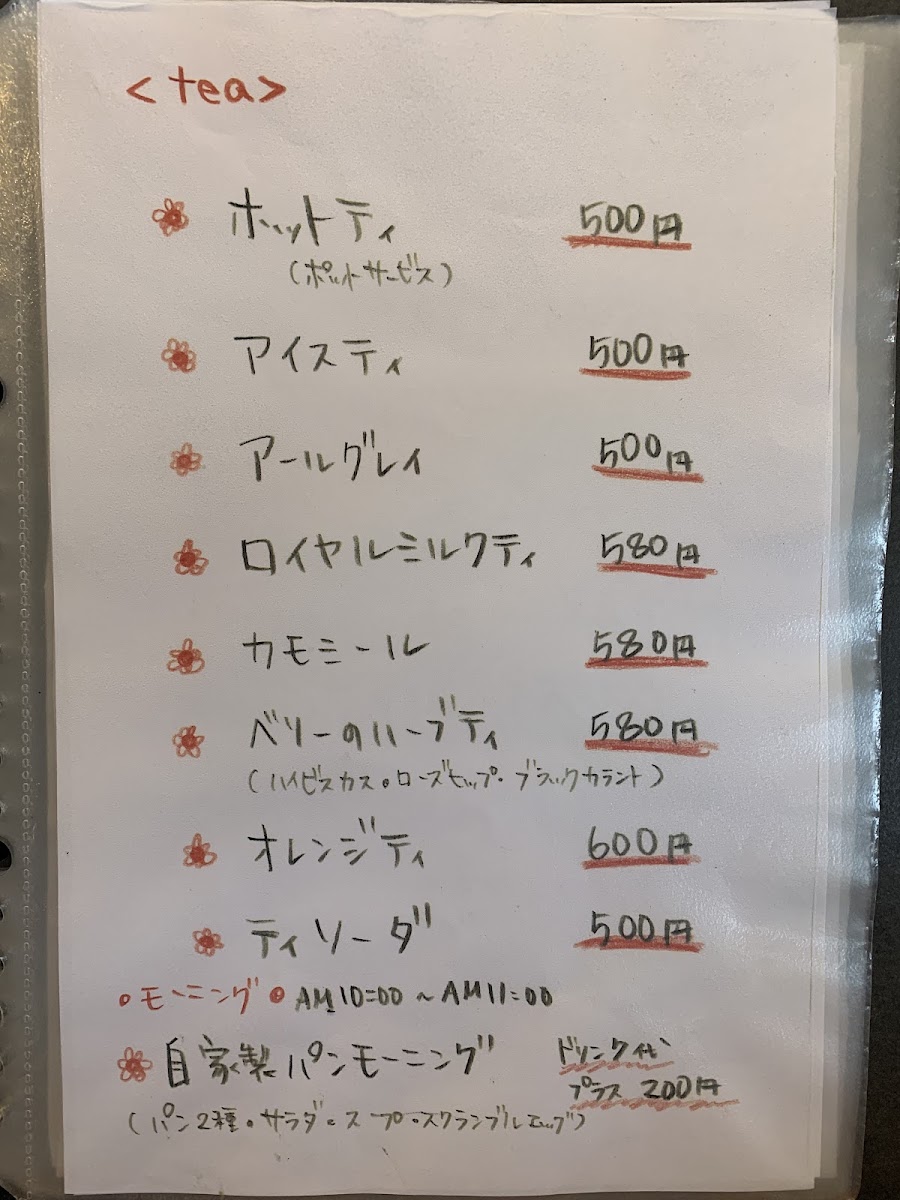 <tea>
ホットティ 500円
(ポットサービス)
アイスティ 500円
アールグレイ 500円
ロイヤルミルクティ 580円
カモミール 580円
ベリーのハーブティ 580円
(ハイビスカス・ローズヒップ・ブラックカラント)
オレンジティ 600円
ティソーダ 500円
・モーニング・ AM10:00 ~ AM11:00
自家製パンモーニング ドリンク代
プラス 200円
(パン2種・サラダ・ス プ・スクランブルエッグ)